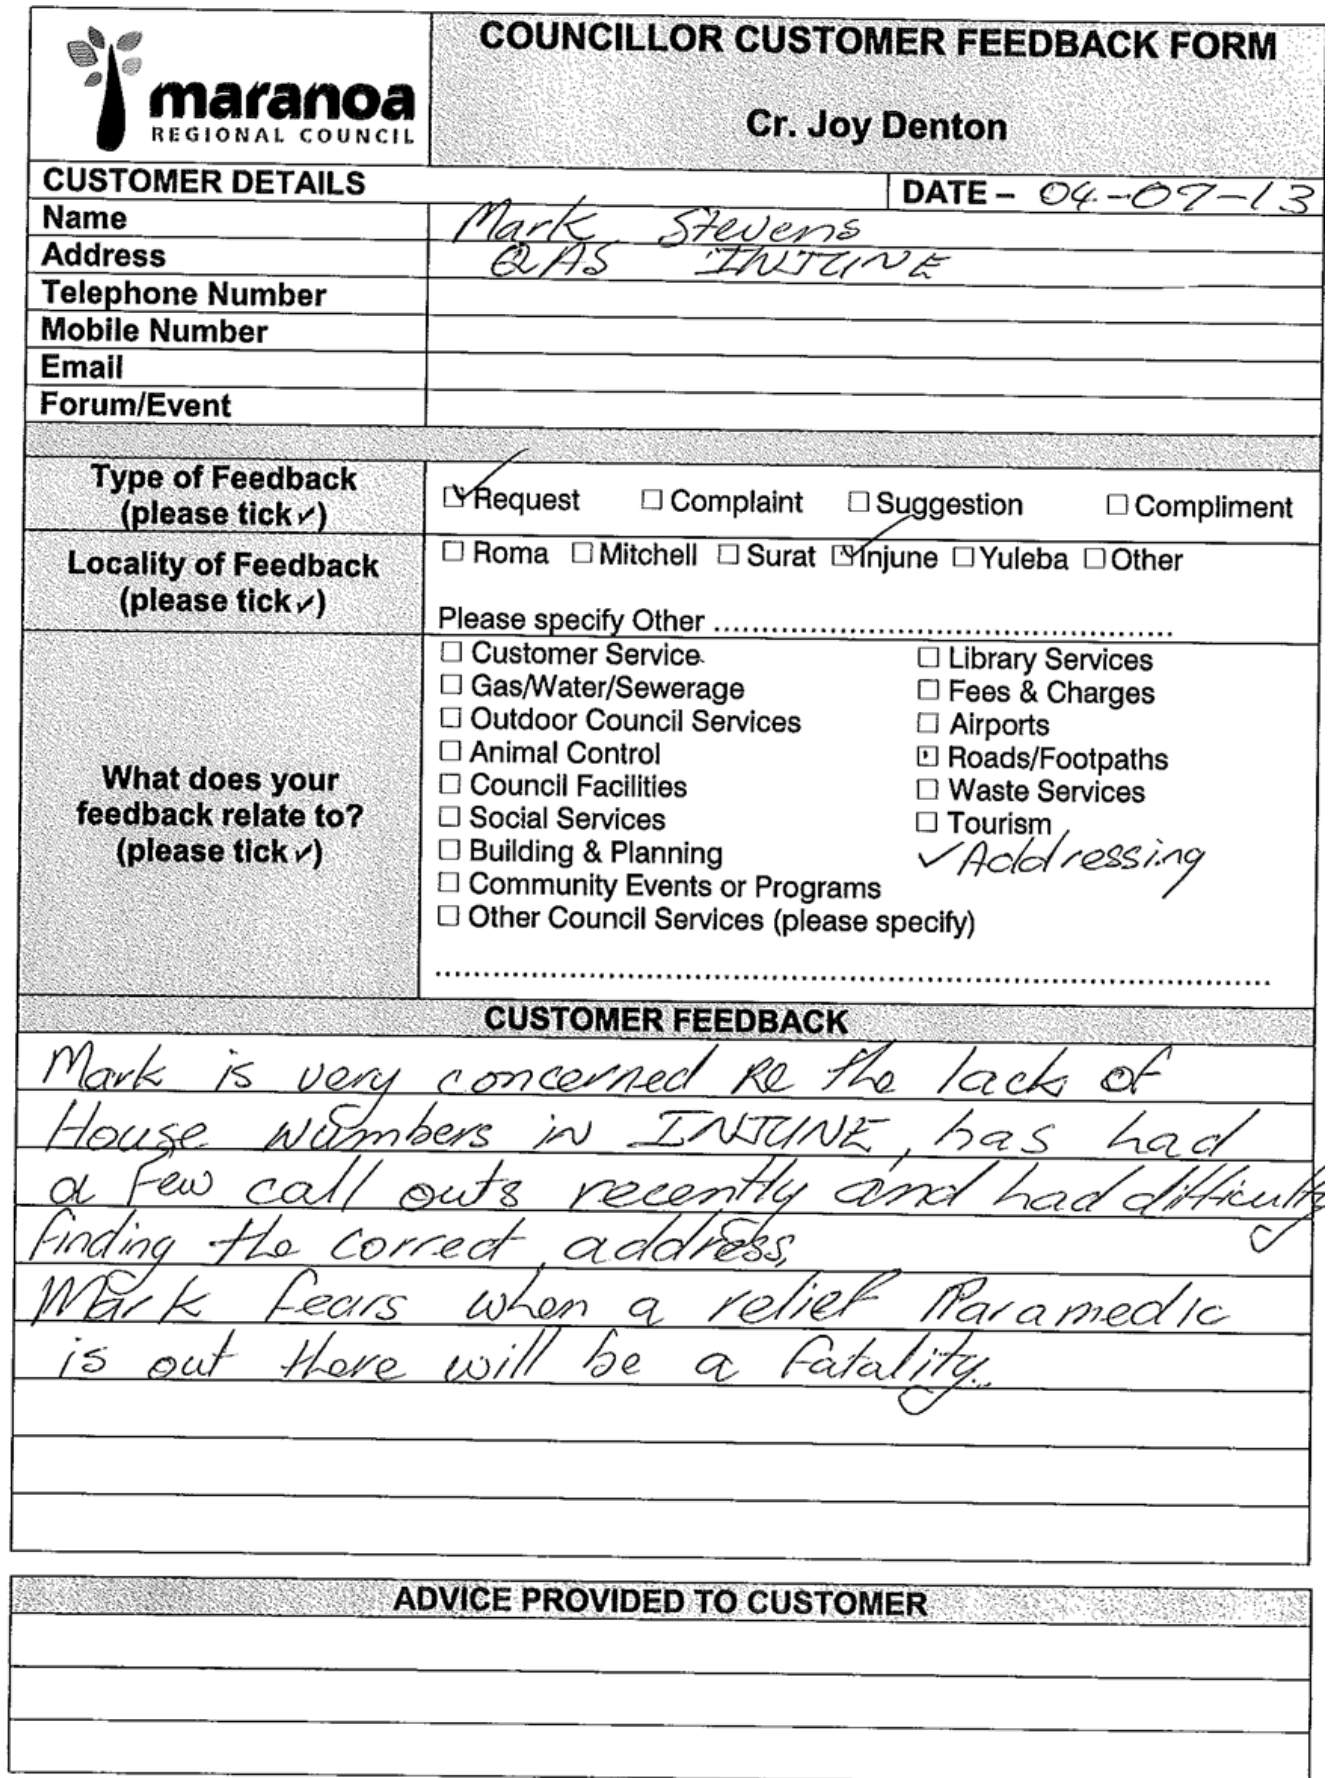 maranoa
REGIONAL COUNCIL
COUNCILLOR CUSTOMER FEEDBACK FORM
Cr. Joy Denton
CUSTOMER DETAILS
DATE – 04-07-13
Name Mark Stevens
Address QAS INJUNE
Telephone Number
Mobile Number
Email
Forum/Event
Type of Feedback
(please tick ✓)
☑ Request ☐ Complaint ☐ Suggestion ☐ Compliment
Locality of Feedback
(please tick ✓)
☐ Roma ☐ Mitchell ☐ Surat ☑ Injune ☐ Yuleba ☐ Other
Please specify Other ..........................................
What does your
feedback relate to?
(please tick ✓)
☐ Customer Service
☐ Gas/Water/Sewerage
☐ Outdoor Council Services
☐ Animal Control
☐ Council Facilities
☐ Social Services
☐ Building & Planning
☐ Community Events or Programs
☐ Other Council Services (please specify)
☐ Library Services
☐ Fees & Charges
☐ Airports
⊡ Roads/Footpaths
☐ Waste Services
☐ Tourism
✓ Addressing
..........................................
CUSTOMER FEEDBACK
Mark is very concerned Re the lack of
House Numbers in INJUNE, has had
a few call outs recently and had difficulty
finding the correct address,
Mark fears when a relief Paramedic
is out there will be a fatality..
ADVICE PROVIDED TO CUSTOMER